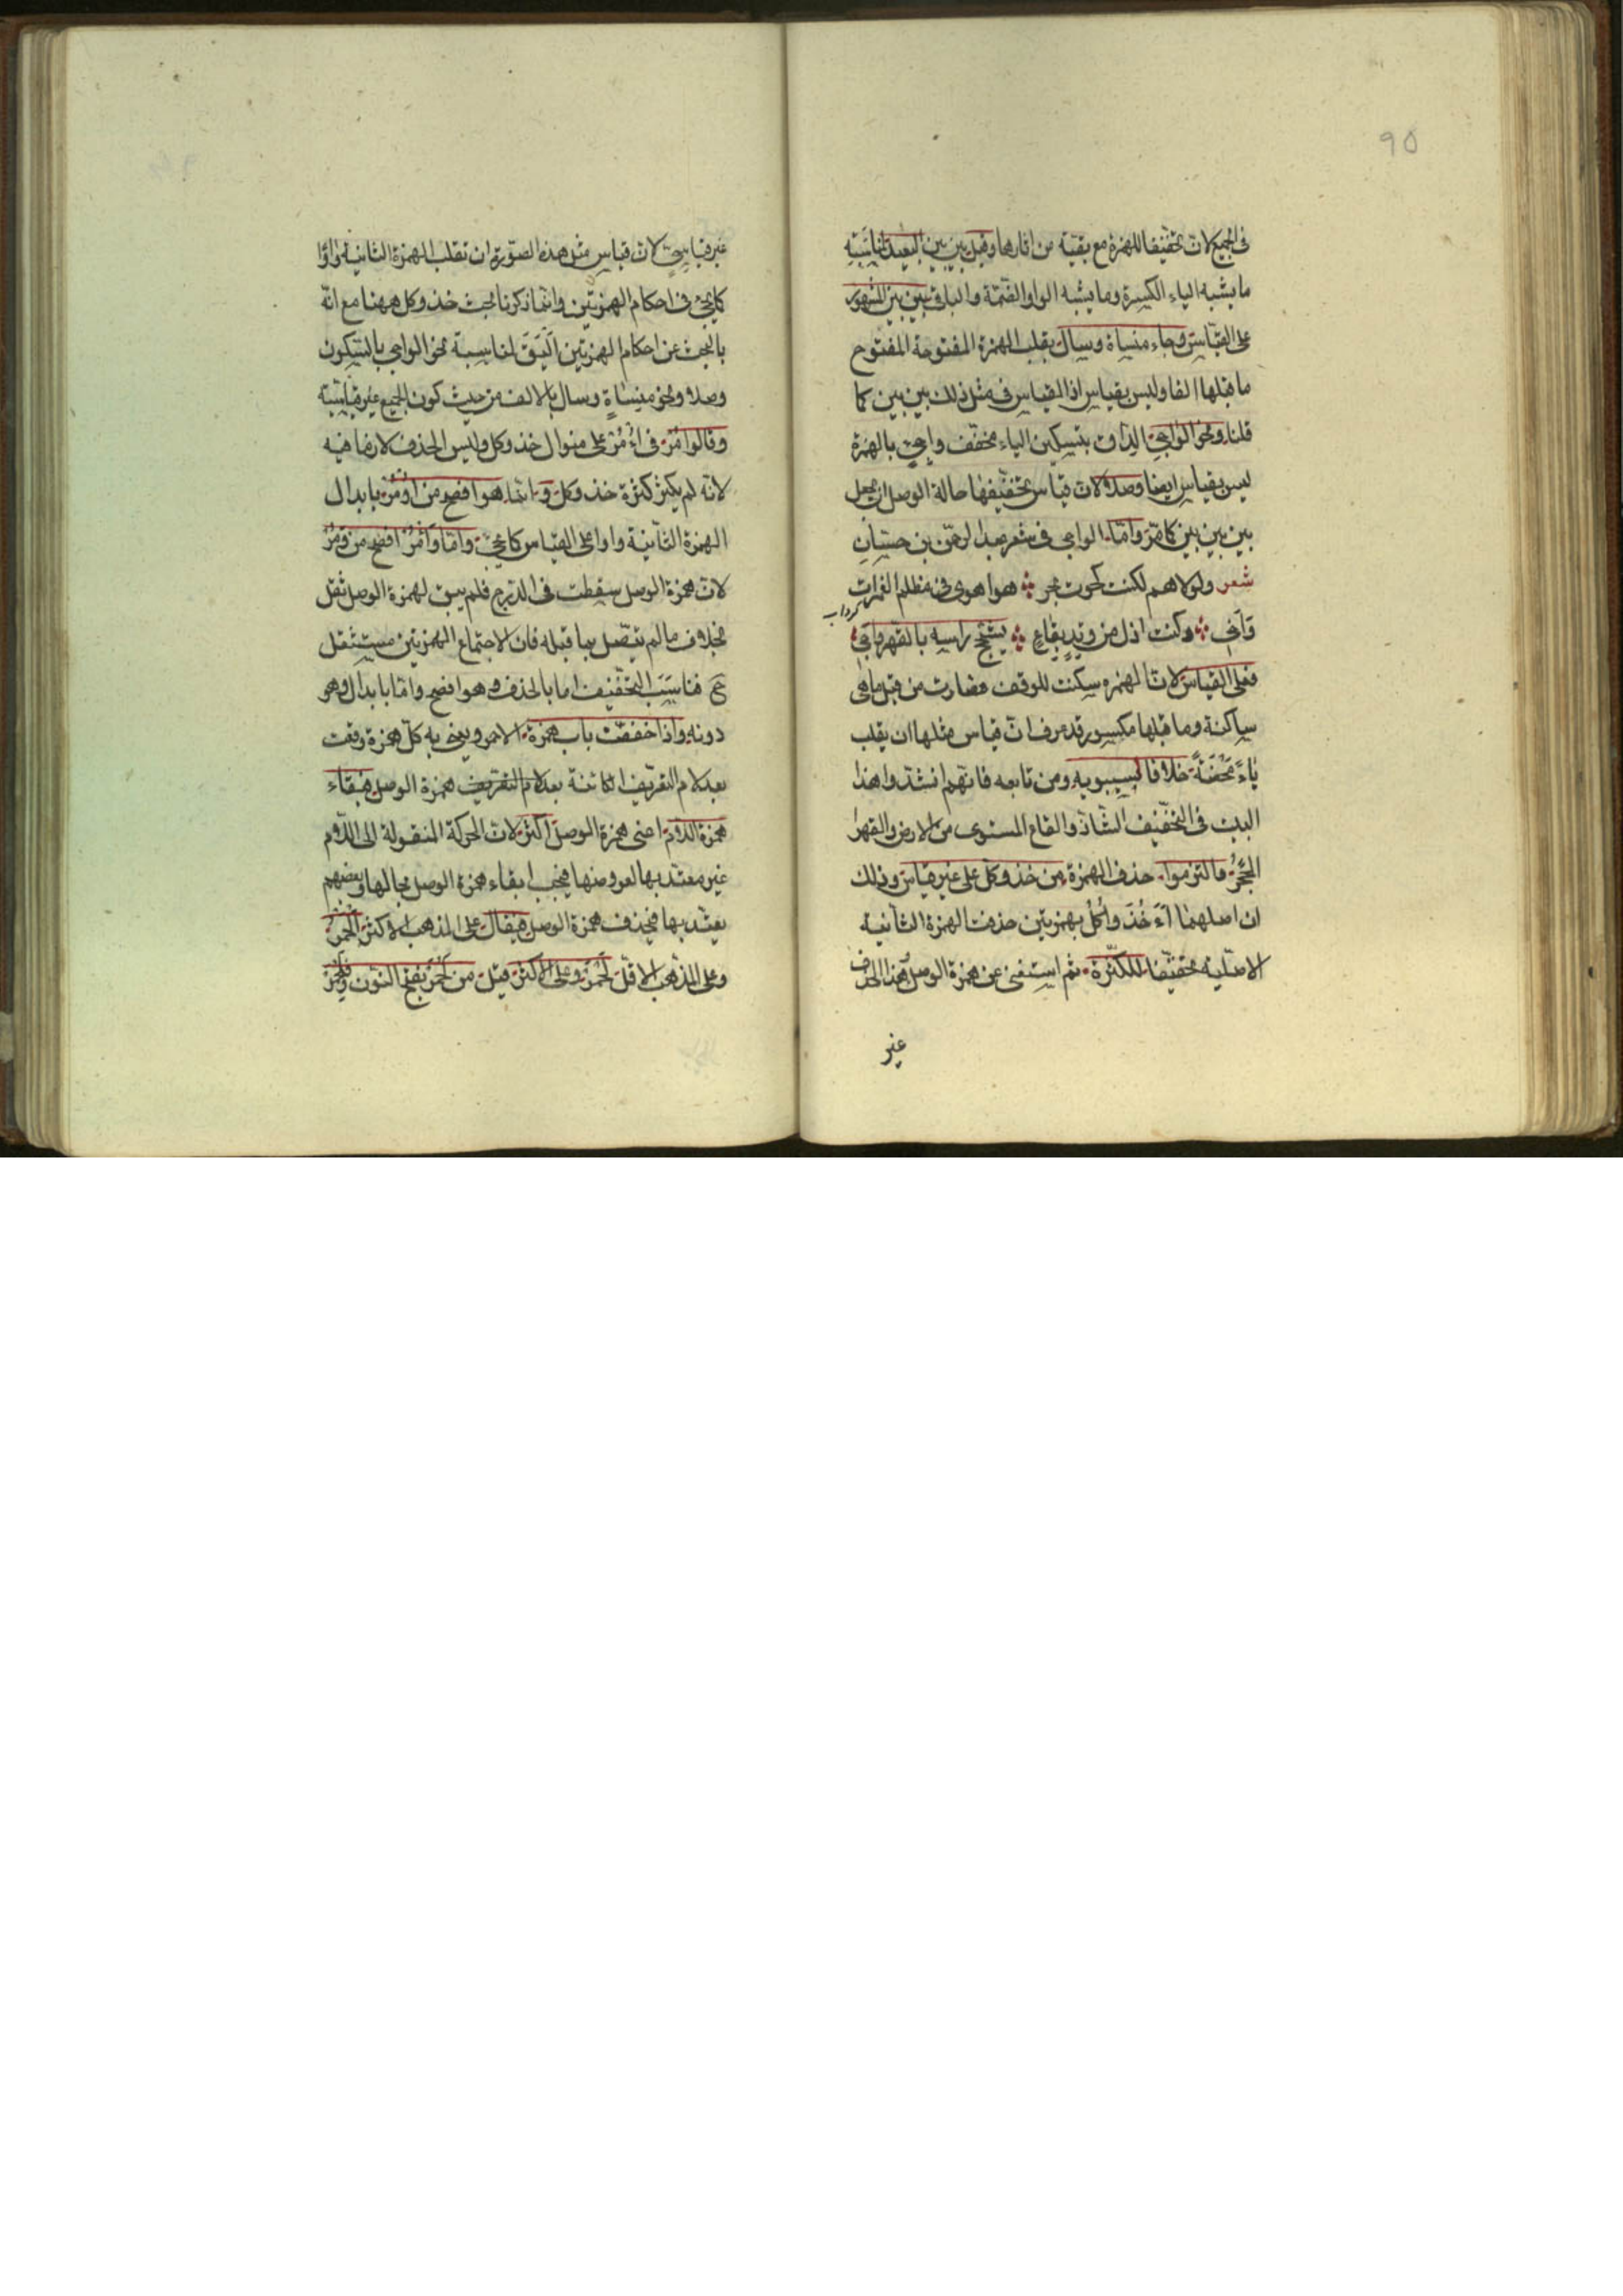 90
فى الجميع لان تخفيفا للهمزة مع بقية من اثارها وقيل بين بين البعيد لمناسبة
ما يشبه الياء الكسرة وما يشبه الواو الضمة والباقى بين بين المشهور
على القياس وجاء منساة وسال بقلب الهمزة المفتوحة المفتوح
ما قبلها الفا وليس بقياس اذ القياس فى مثل ذلك بين بين كما
قلنا ونحو الواجى الذات بتسكين الياء مخفف واجئ بالهمزة
ليس بقياس ايضا وصلا لان قياس تخفيفها حالة الوصل ان يجعل
بين بين بين كما مّر وامّا الواجى فى شعر عبد الرحمن بن حسان
شعر ولولاهم لكنت كحوت بحر هوا هوى فى مظلم الغمرات
گرداب
داجى وكنت اذل من وتد بقاع يشجج راسه بالفهر واجى
فعلى القياس لان الهمزه سكنت للوقف فصارت من قبل ما هى
ساكنة وما قبلها مكسور قد عرف انّ قياس مثلها ان يقلب
ياءً محضةً خلافا لسيبويه ومن تابعه فانهم انشدوا هذا
البيت فى التخفيف الشاذ والقاع المستوى من الارض والفهر
الحجر فالتزموا حذف الهمزة من خذ وكل على غير قياس وذلك
ان اصلهما اءخُذ واُكُل بهمزتين حذفت الهمزة الثانية
الاصلية تخفيفا للكثرة ثم استغنى عن همزة الوصل فهذا الحذف
غير
غير قياسىّ لان قياس مثل هذه الصّورة ان تقلب الهمزة الثانية واوًا
كما يجئ فى احكام الهمزتين وانّما ذكرنا بحث خذ وكل ههنا مع انّه
بالبحث عن احكام الهمزتين اليق لمناسبة نحو الواجى بالسّكون
وصلا ونحو منساةٍ وسال بالالف من حيث كون الجميع غير قياسية
وقالوا مُر فى اءْمُر على منوال خذ وكل وليس الحذف لازما فيه
لانه لم يكثر كثرة خذ وكل وانّما هو افصح من اُومُر بابدال
الهمزة الثانية واوا على القياس كما يجئ وامّا وَأْمُر افصح من ومُر
لان همزة الوصل سقطت فى الدرج فلم يبق لهمزة الوصل ثقل
بخلاف ما لم يتصل بما قبله فان الاجتماع الهمزتين مستثقل
ح فناسب التخفيف اما بالحذف وهو افصح وامّا بابدال وهو
دونه واذا خففت باب همزة الاحمر ويعنى به كل همزة وقعت
بعد لام التعريف الكائنة بعد لام التعريف همزة الوصل فبقاء
همزة اللام اعنى همزة الوصل اكثر لان الحركة المنقولة الى اللام
غير معتد بها لعروضها فيجب ابقاء همزة الوصل بحالها وبعضهم
يعتد بها فيحذف همزة الوصل فيقال على المذهب الاكثر اَلَحْمَرُ
وعلى المذهب الاقل لَحْمَرُ وعلى الاكثر قيل من لَحْمَر بفتح النون وفِلَحْمَر